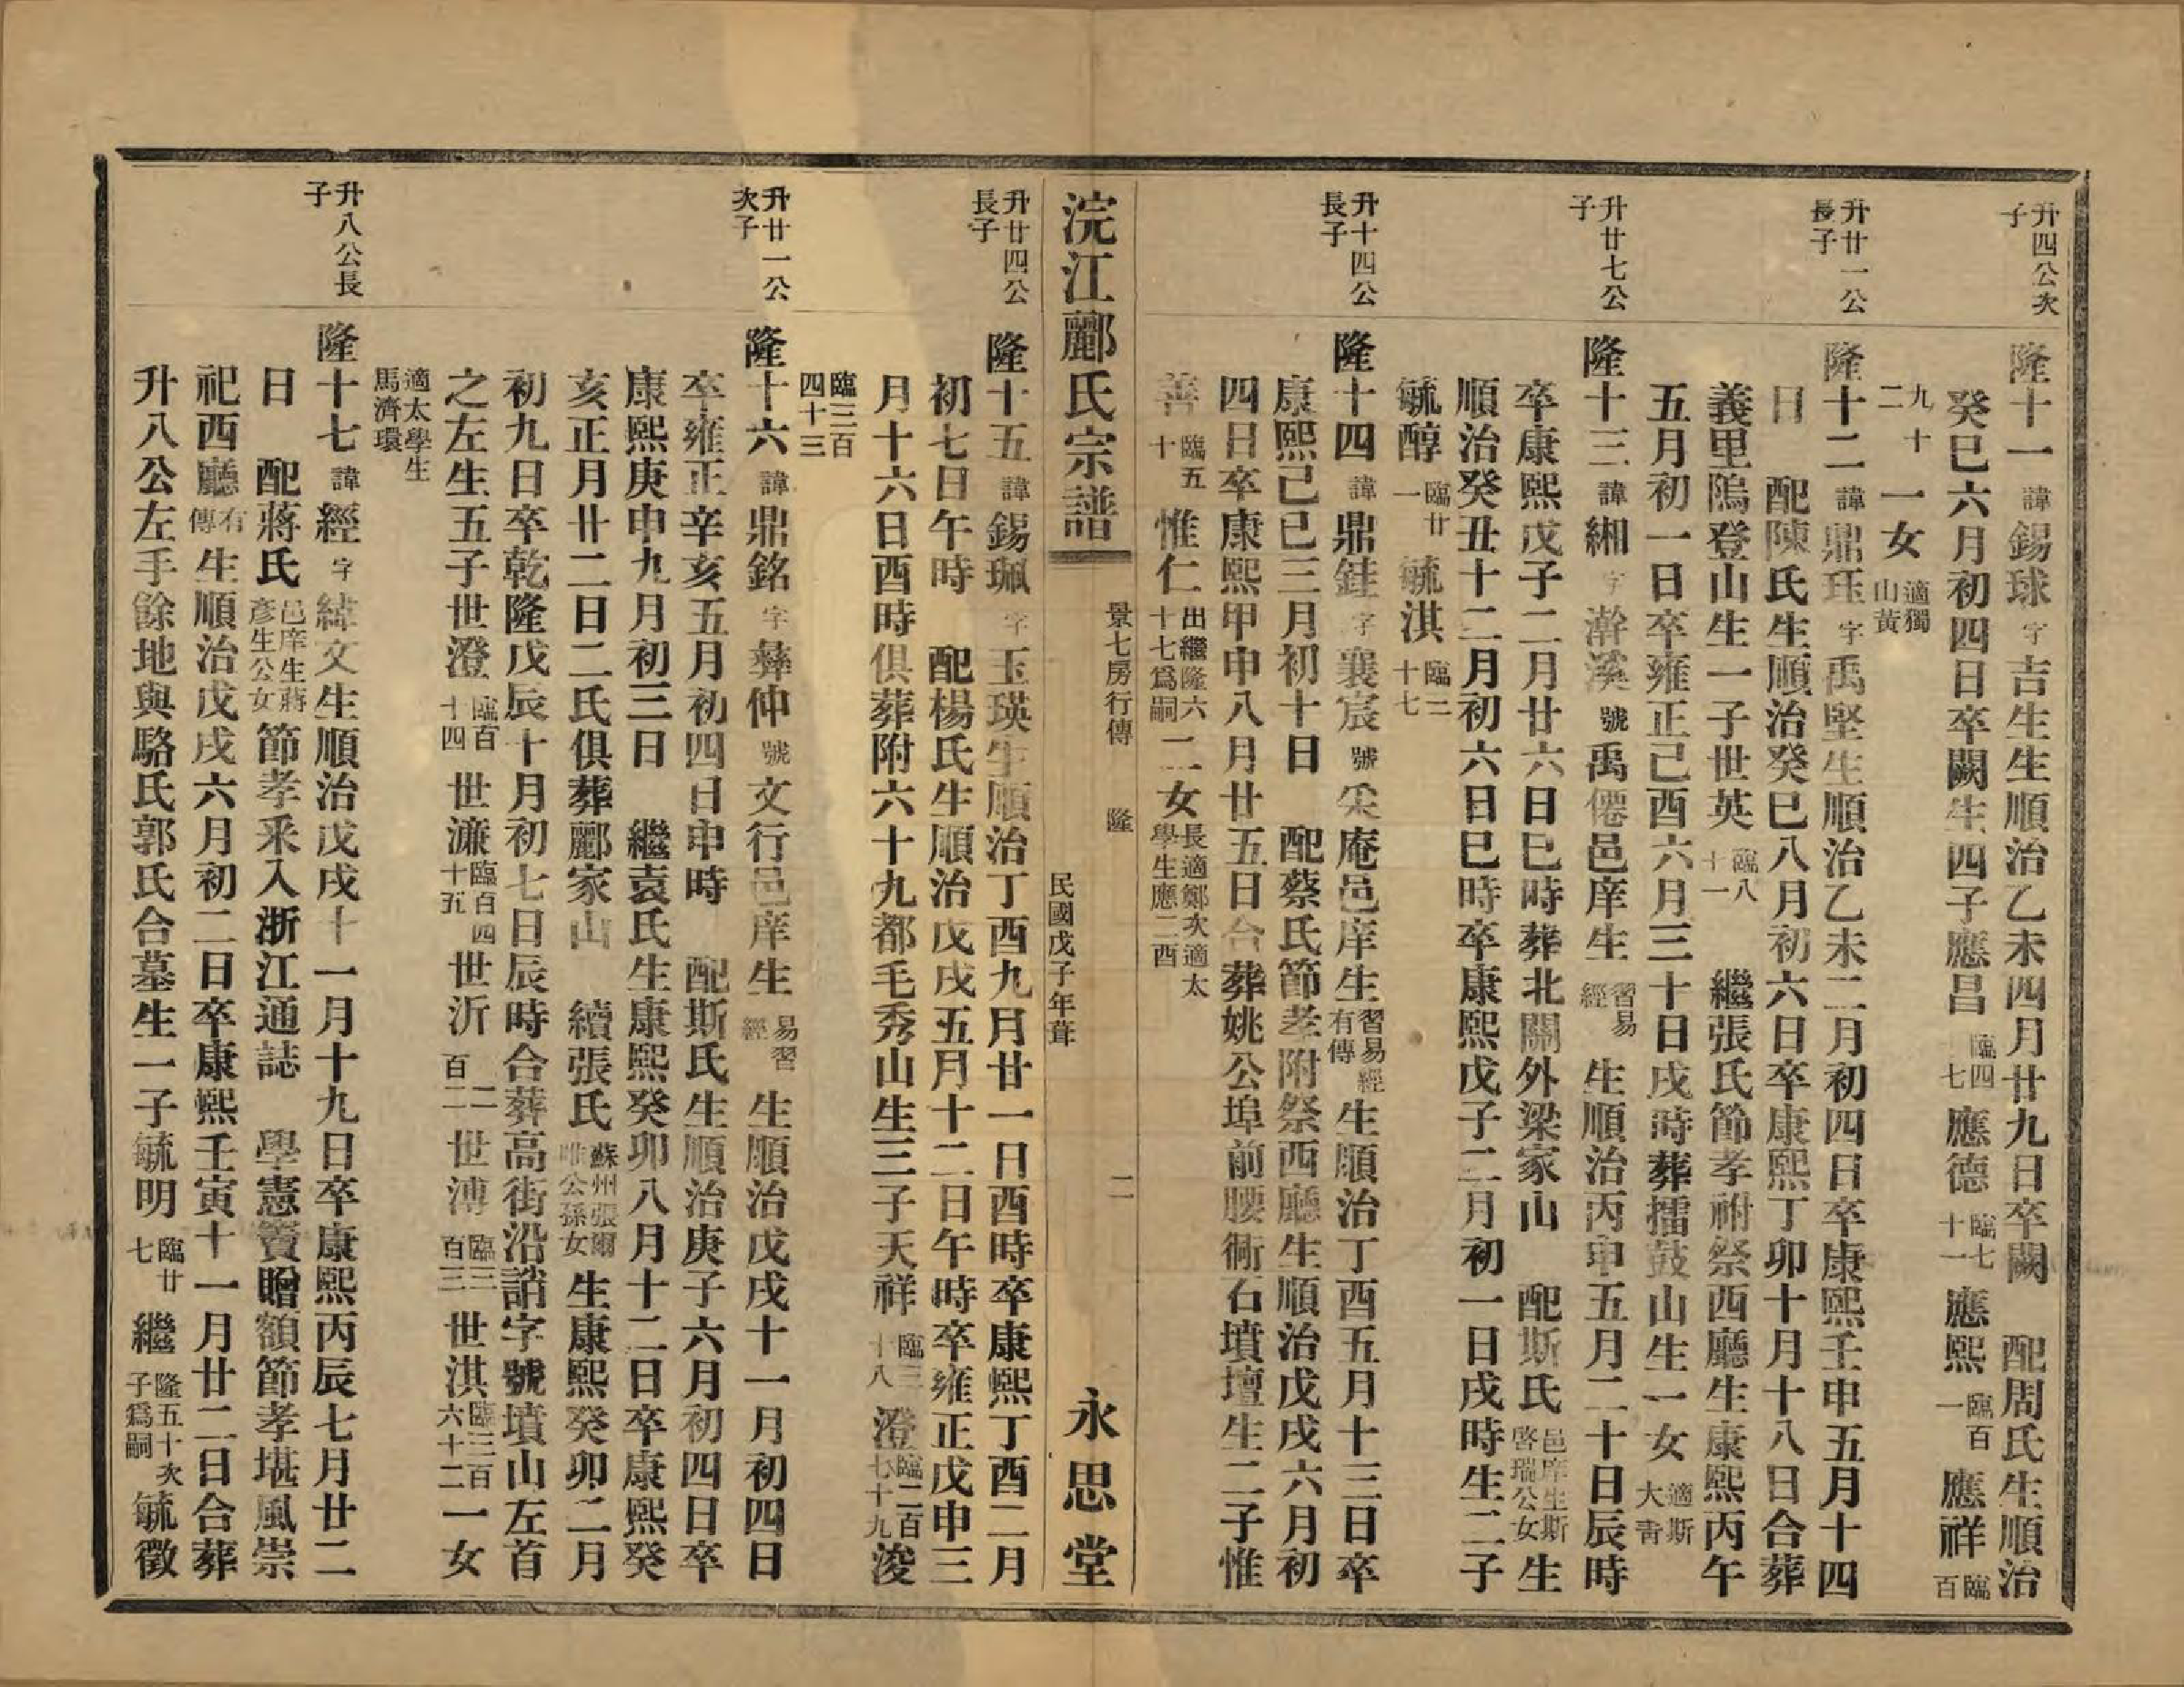 升四公次子
隆十一諱錫球字吉生生順治乙未四月廿九日卒闕　配周氏生順治
癸巳六月初四日卒闕生四子應昌臨四七應德臨七十一應熙臨百一應祥臨百
九十二一女適獨山黃
升廿一公長子
隆十二諱鼎玨字禹堅生順治乙未二月初四日卒康熙壬申五月十四
日　配陳氏生順治癸巳八月初六日卒康熙丁卯十月十八日合葬
義里隖登山生一子世英臨八十一　繼張氏節孝祔祭西廳生康熙丙午
五月初一日卒雍正己酉六月三十日戌時葬擂鼓山生一女適斯大靑
升廿七公子
隆十三諱緗字澣溪號禹僊邑庠生習易經生順治丙申五月二十日辰時
卒康熙戊子二月廿六日巳時葬北關外梁家山　配斯氏邑庠生斯啓瑞公女生
順治癸丑十二月初六日巳時卒康熙戊子二月初一日戌時生二子
毓醇臨廿一毓淇臨二十七
升十四公長子
隆十四諱鼎銈字襄宸號采庵邑庠生習易經有傳生順治丁酉五月十三日卒
康熙己巳三月初十日　配蔡氏節孝附祭西廳生順治戊戌六月初
四日卒康熙甲申八月廿五日合葬姚公埠前腰衕石墳壇生二子惟
善臨五十惟仁出繼隆六十七爲嗣二女長適鄭次適太學生應二酉
浣江酈氏宗譜
景七房行傳　隆
二
民國戊子年葺
永思堂
升廿四公長子
隆十五諱錫珮字玉瑛生順治丁酉九月廿一日酉時卒康熙丁酉二月
初七日午時　配楊氏生順治戊戌五月十二日午時卒雍正戊申三
月十六日酉時俱葬附六十九都毛秀山生三子天祥臨三十八澄臨二百七十九浚
臨三百四十三
升廿一公次子
隆十六諱鼎銘字彝仲號文行邑庠生習易經生順治戊戌十一月初四日
卒雍正辛亥五月初四日申時　配斯氏生順治庚子六月初四日卒
康熙庚申九月初三日　繼袁氏生康熙癸卯八月十二日卒康熙癸
亥正月廿二日二氏俱葬酈家山　續張氏蘇州張爾唯公孫女生康熙癸卯二月
初九日卒乾隆戊辰十月初七日辰時合葬高街沿誚字號墳山左首
之左生五子世澄臨百十四世濂臨百四十五世沂二百二世溥臨三百三世淇臨三百六十二一女
適太學生馬濟環
升八公長子
隆十七諱經字緯文生順治戊戌十一月十九日卒康熙丙辰七月廿二
日　配蔣氏邑庠生蔣彥生公女節孝釆入浙江通誌　學憲竇贈額節孝堪風崇
祀西廳有傳生順治戊戌六月初二日卒康熙壬寅十一月廿二日合葬
升八公左手餘地與駱氏郭氏合墓生一子毓明臨廿七　繼隆五十次子爲嗣毓徵